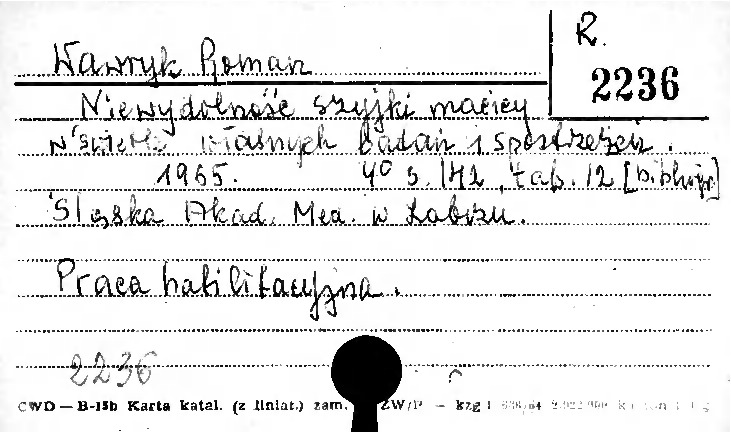 Wawryk Roman
R.
2236
Niewydolność szyjki macicy
w świetle własnych badań i spostrzeżeń.
1965. 4° s. 142, tab. 12 [bibliogr.]
Śląska Akad. Med. w Zabrzu.
Praca habilitacyjna.
2236
CWD — B-15b Karta katal. (z liniat.) zam. ZW/P — kzg